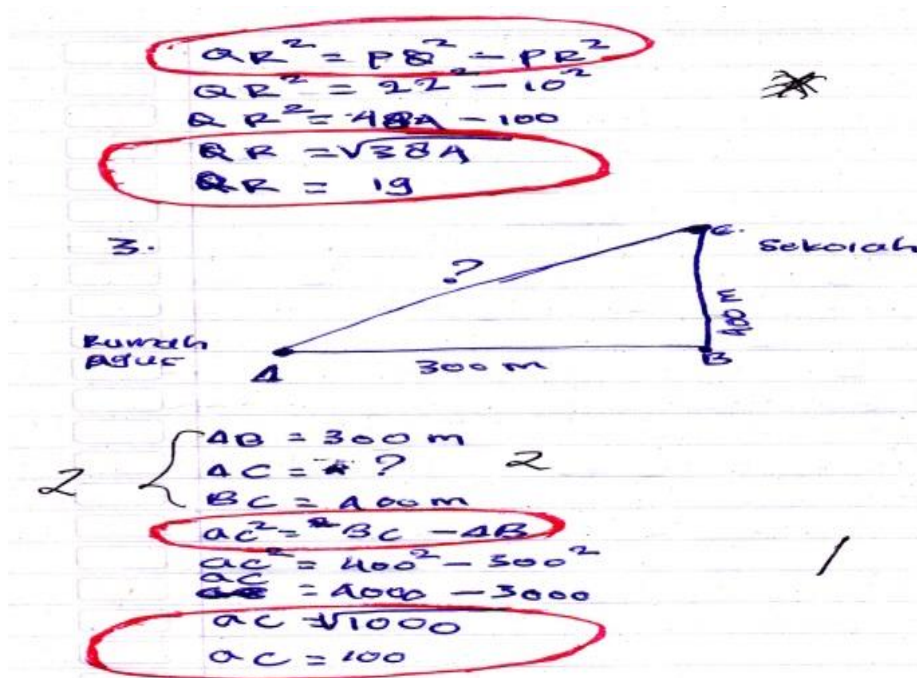 QR² = PQ² - PR²
QR² = 22² - 10²
QR² = 484 - 100
QR = √384
QR = 19
3.
C.
Sekolah
?
400 m
Rumah
Agus
A
300 m
B
AB = 300 m
2
AC = ?
2
BC = 400 m
ac² = BC - AB
ac² = 400² - 300²
1
ac = 4000 - 3000
ac = √1000
ac = 100